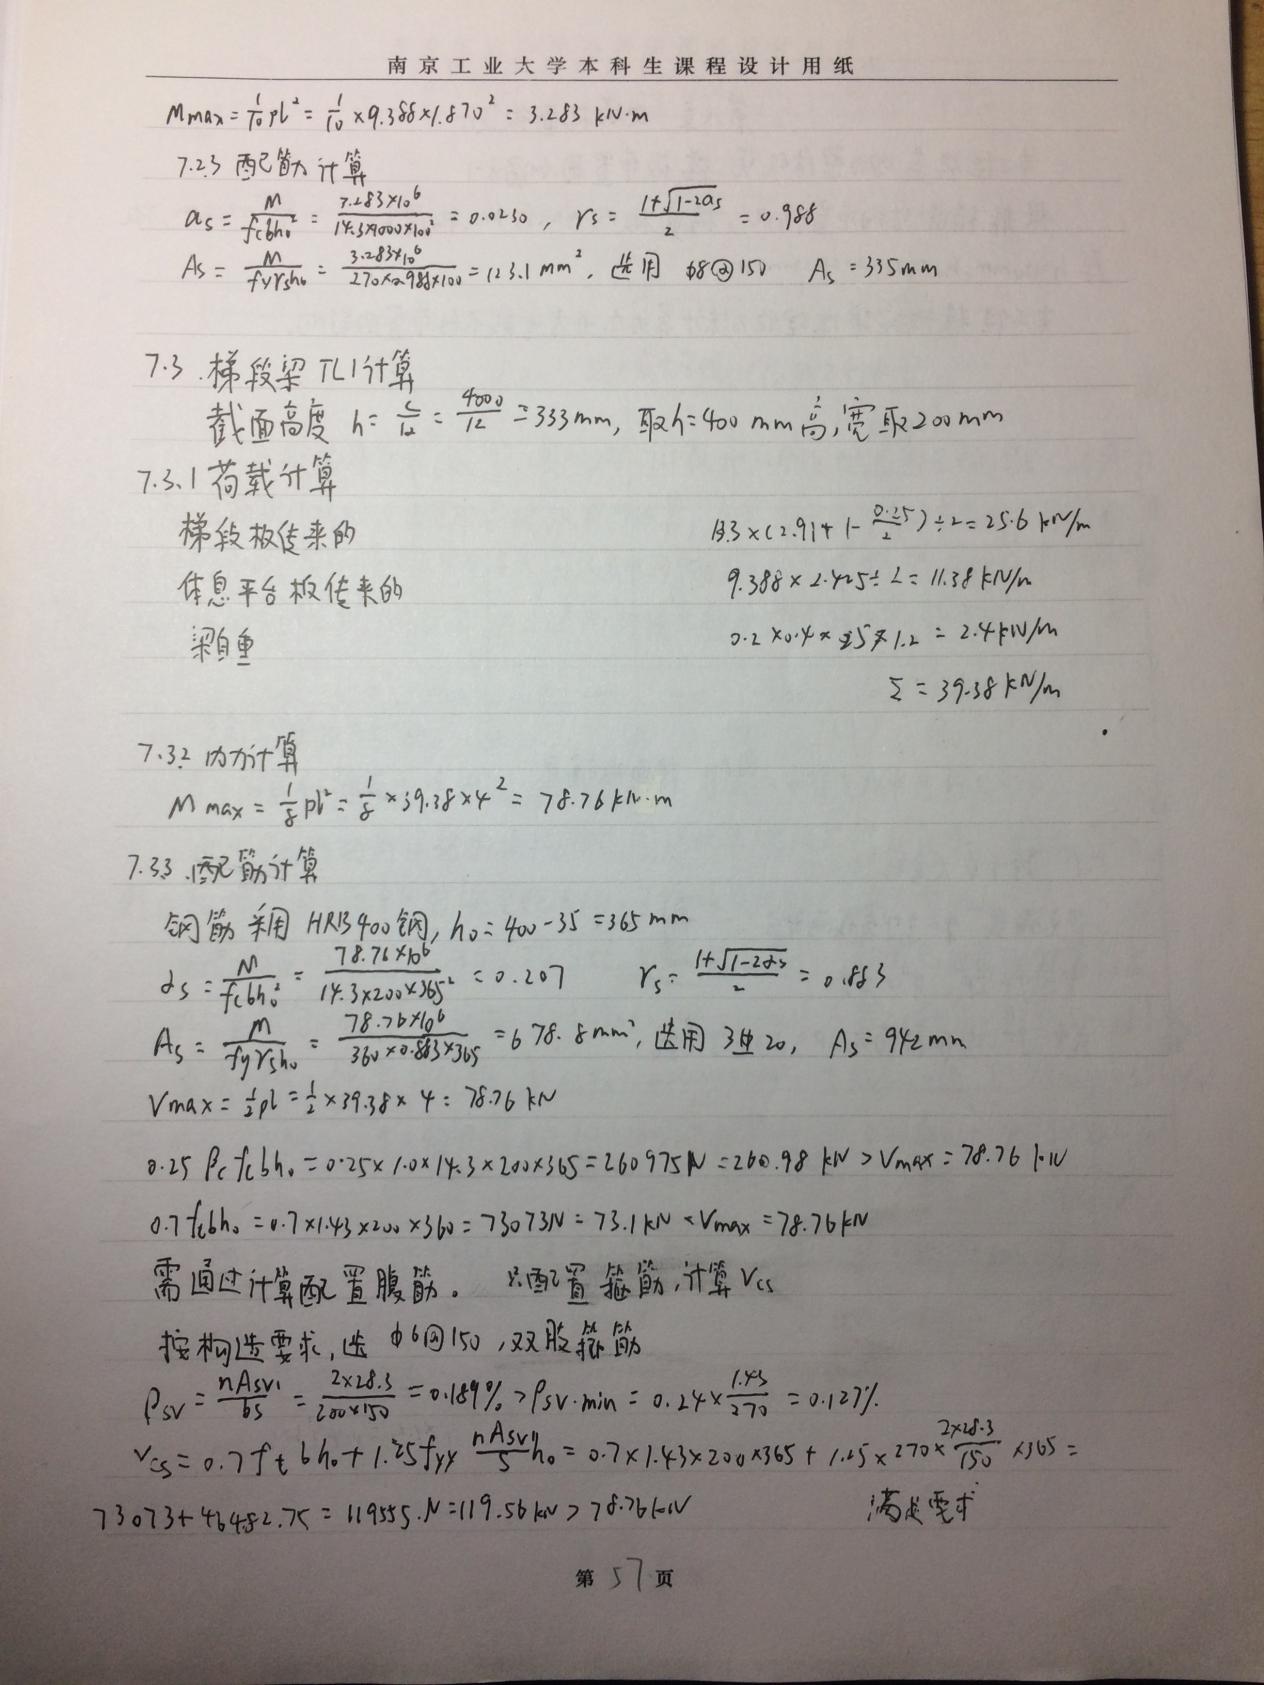 南京工业大学本科生课程设计用纸
Mmax = 1/10 pl² = 1/10 ×9.388×1.870² = 3.283 kN·m
7.2.3 配筋计算
αs = M/fcbh₀² = 3.283×10⁶/14.3×1000×100² = 0.0230 , rs = 1+√1-2αs/2 = 0.988
As = M/fyrsh₀ = 3.283×10⁶/270×0.988×100 = 123.1 mm², 选用 ϕ8@150 As = 335mm
7.3 .梯段梁 TL1计算
截面高度 h= L/12 = 4000/12 =333mm, 取h=400 mm高,宽取200mm
7.3.1 荷载计算
梯段板传来的 13.3×(2.914 + 0.25/2)÷2=25.6 kN/m
休息平台板传来的 9.388×2.425÷2= 11.38kN/m
梁自重 0.2×0.4×25×1.2 = 2.4kN/m
Σ = 39.38 kN/m
7.3.2 内力计算
M max = 1/8 pl² = 1/8 ×39.38×4² = 78.76 kN·m
7.3.3 .配筋计算
钢筋采用 HRB400钢, h₀= 400-35 =365mm
αs = M/fcbh₀² = 78.76×10⁶/14.3×200×365² = 0.207 rs= 1+√1-2αs/2 = 0.883
As = M/fyrsh₀ = 78.76×10⁶/360×0.883×365 = 678.8mm², 选用 3⏀20, As = 942mm
Vmax = 1/2 pl = 1/2 ×39.38× 4 = 78.76 kN
0.25 βc fcbh₀ = 0.25× 1.0×14.3×200×365=260975N =260.98 kN > Vmax = 78.76 kN
0.7ftbh₀ =0.7×1.43×200×360= 73073N= 73.1kN <Vmax =78.76kN
需通过计算配置腹筋。 只配置箍筋,计算 Vcs
按构造要求,选 ϕ6@150 ,双肢箍筋
ρsv = nAsv1/bs = 2×28.3/200×150 =0.189% >ρsv·min = 0.24× 1.43/270 = 0.127%
Vcs = 0.7 ft bh₀ + 1.25fyv nAsv1/s h₀= 0.7×1.43×200×365 + 1.25×270× 2×28.3/150 ×365 =
73073+46482.75 = 119555.N =119.56kN > 78.76kN 满足要求
第 57 页